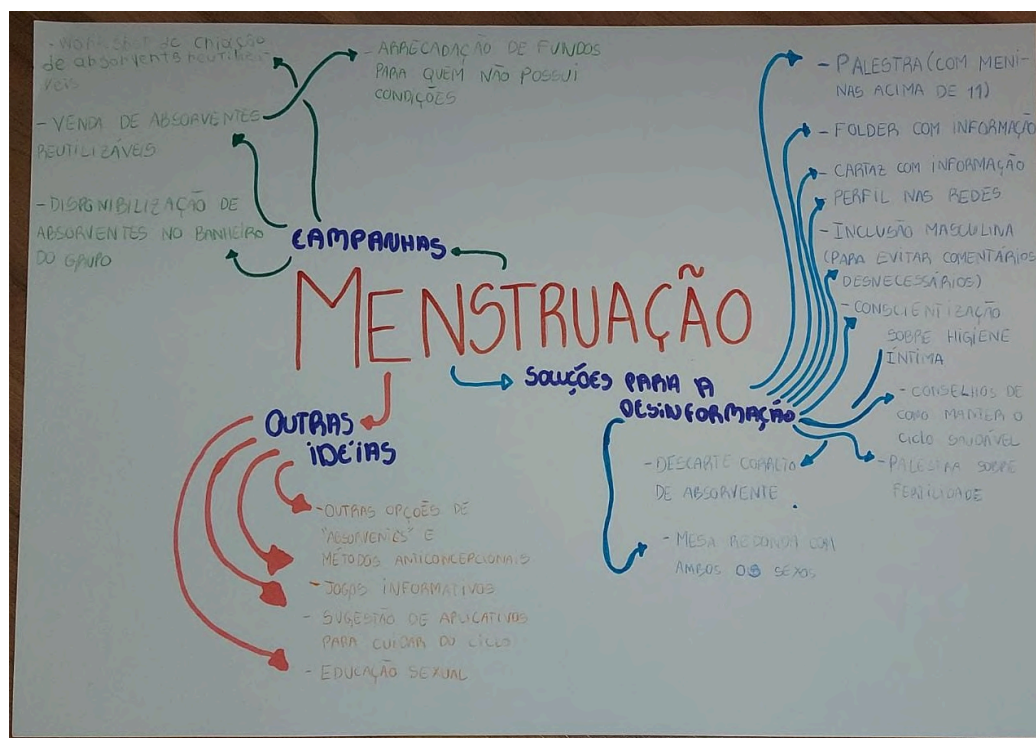 - Workshop de criação
de absorvente reutilizá-
veis
- VENDA DE ABSORVENTES
REUTILIZÁVEIS
- DISPONIBILIZAÇÃO DE
ABSORVENTES NO BANHEIRO
DO GRUPO
- ARRECADAÇÃO DE FUNDOS
PARA QUEM NÃO POSSUI
CONDIÇÕES
CAMPANHAS
MENSTRUAÇÃO
SOLUÇÕES PARA A
DESINFORMAÇÃO
- PALESTRA (COM MENI-
NAS ACIMA DE 11)
- FOLDER COM INFORMAÇÃO
- CARTAZ COM INFORMAÇÃO
- PERFIL NAS REDES
- INCLUSÃO MASCULINA
(PARA EVITAR COMENTÁRIOS
DESNECESSÁRIOS)
- CONSCIENTIZAÇÃO
SOBRE HIGIENE
ÍNTIMA
- CONSELHOS DE
COMO MANTER O
CICLO SAUDÁVEL
- PALESTRA SOBRE
FERTILIDADE
- DESCARTE CORRETO
DE ABSORVENTE
- MESA REDONDA COM
AMBOS OS SEXOS
OUTRAS
IDEIAS
- OUTRAS OPÇÕES DE
"ABSORVENTES" E
MÉTODOS ANTICONCEPCIONAIS
- JOGOS INFORMATIVOS
- SUGESTÃO DE APLICATIVOS
PARA CUIDAR DO CICLO
- EDUCAÇÃO SEXUAL